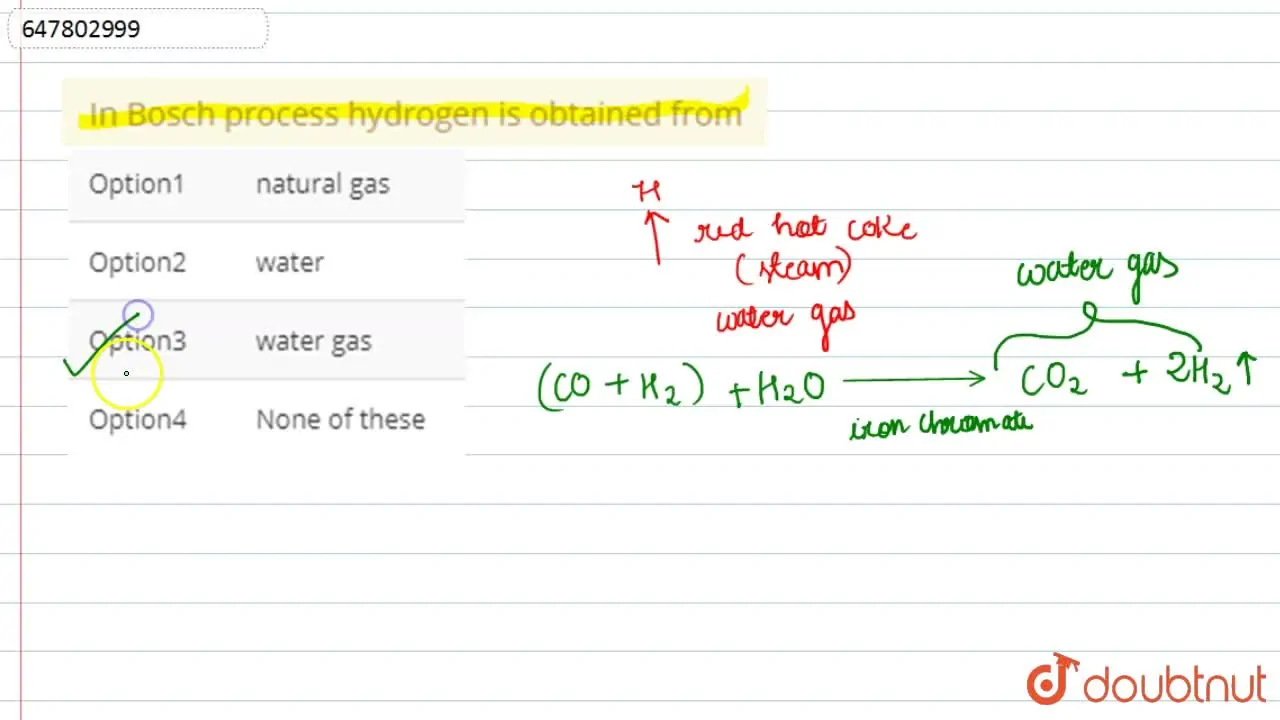 647802999
In Bosch process hydrogen is obtained from
Option1 natural gas
Option2 water
Option3 water gas
Option4 None of these
H
↑ red hot coke
(steam)
water gas
water gas
(CO + H₂) + H₂O ⟶ CO₂ + 2H₂↑
iron chromate
doubtnut